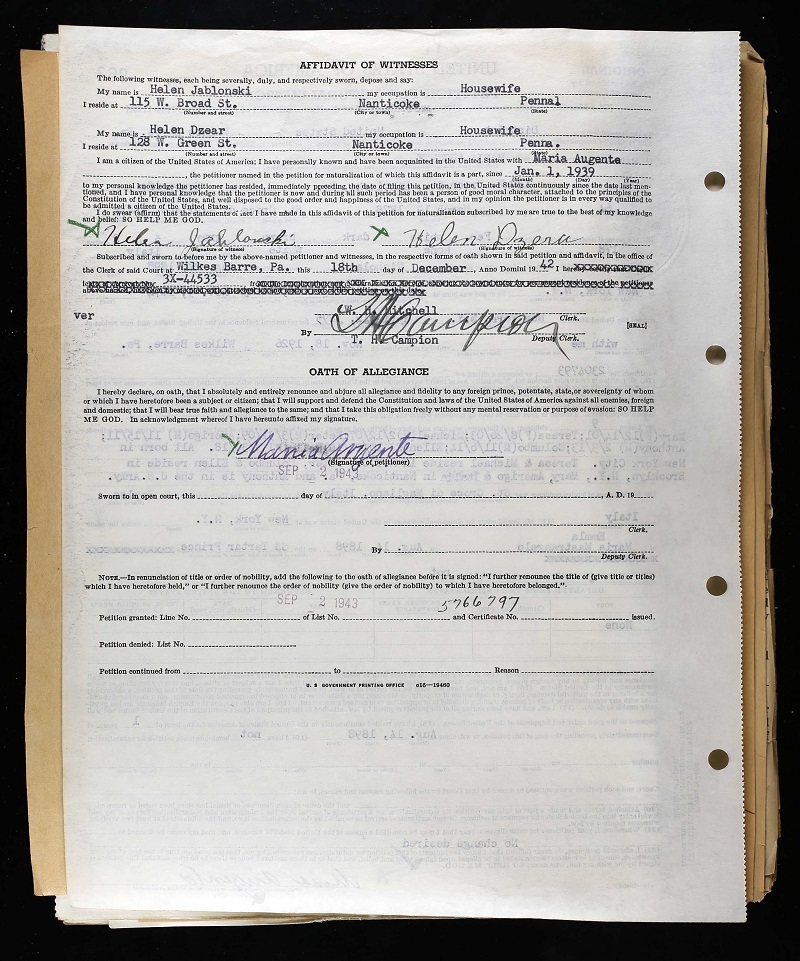 AFFIDAVIT OF WITNESSES
The following witnesses, each being severally, duly, and respectively sworn, depose and say:
My name is Helen Jablonski my occupation is Housewife
I reside at 115 W. Broad St. Nanticoke Pennal
(Number and street) (City or town) (State)
My name is Helen Dzear my occupation is Housewife
I reside at 128 W. Green St. Nanticoke Penna.
(Number and street) (City or town) (State)
I am a citizen of the United States of America; I have personally known and have been acquainted in the United States with Maria Augente
, the petitioner named in the petition for naturalization of which this affidavit is a part, since Jan. 1, 1939
(Month) (Day) (Year)
to my personal knowledge the petitioner has resided, immediately preceding the date of filing this petition, in the United States continuously since the date last men-
tioned, and I have personal knowledge that the petitioner is now and during all such period has been a person of good moral character, attached to the principles of the
Constitution of the United States, and well disposed to the good order and happiness of the United States, and in my opinion the petitioner is in every way qualified to
be admitted a citizen of the United States.
I do swear (affirm) that the statements of fact I have made in this affidavit of this petition for naturalization subscribed by me are true to the best of my knowledge
and belief: SO HELP ME GOD.
Helen Jablonski Helen Dzera
(Signature of witness) (Signature of witness)
Subscribed and sworn to before me by the above-named petitioner and witnesses, in the respective forms of oath shown in said petition and affidavit, in the office of
the Clerk of said Court at Wilkes Barre, Pa. this 18th day of December, Anno Domini 19 42 I hereby
3X-44533
ver
W. H. Mitchell
Clerk.
T H Campion
[SEAL]
By T. H. Campion Deputy Clerk.
OATH OF ALLEGIANCE
I hereby declare, on oath, that I absolutely and entirely renounce and abjure all allegiance and fidelity to any foreign prince, potentate, state, or sovereignty of whom
or which I have heretofore been a subject or citizen; that I will support and defend the Constitution and laws of the United States of America against all enemies, foreign
and domestic; that I will bear true faith and allegiance to the same; and that I take this obligation freely without any mental reservation or purpose of evasion: SO HELP
ME GOD. In acknowledgment whereof I have hereunto affixed my signature.
Maria Argente
(Signature of petitioner)
SEP 2 1943
Sworn to in open court, this day of , A. D. 19
Clerk.
By
Deputy Clerk.
NOTE.—In renunciation of title or order of nobility, add the following to the oath of allegiance before it is signed: "I further renounce the title of (give title or titles)
which I have heretofore held," or "I further renounce the order of nobility (give the order of nobility) to which I have heretofore belonged."
SEP 2 1943 5766797
Petition granted: Line No. of List No. and Certificate No. issued.
Petition denied: List No.
Petition continued from to Reason
U. S. GOVERNMENT PRINTING OFFICE c16—19460